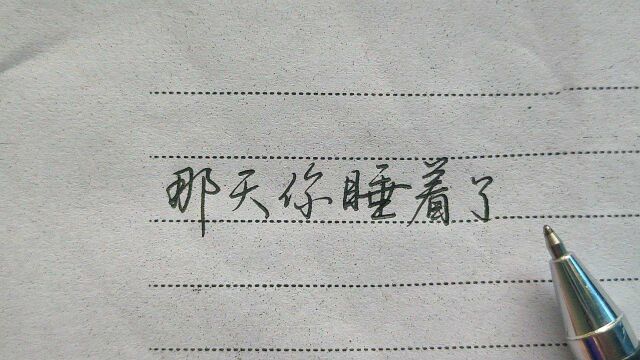 那天你睡着了